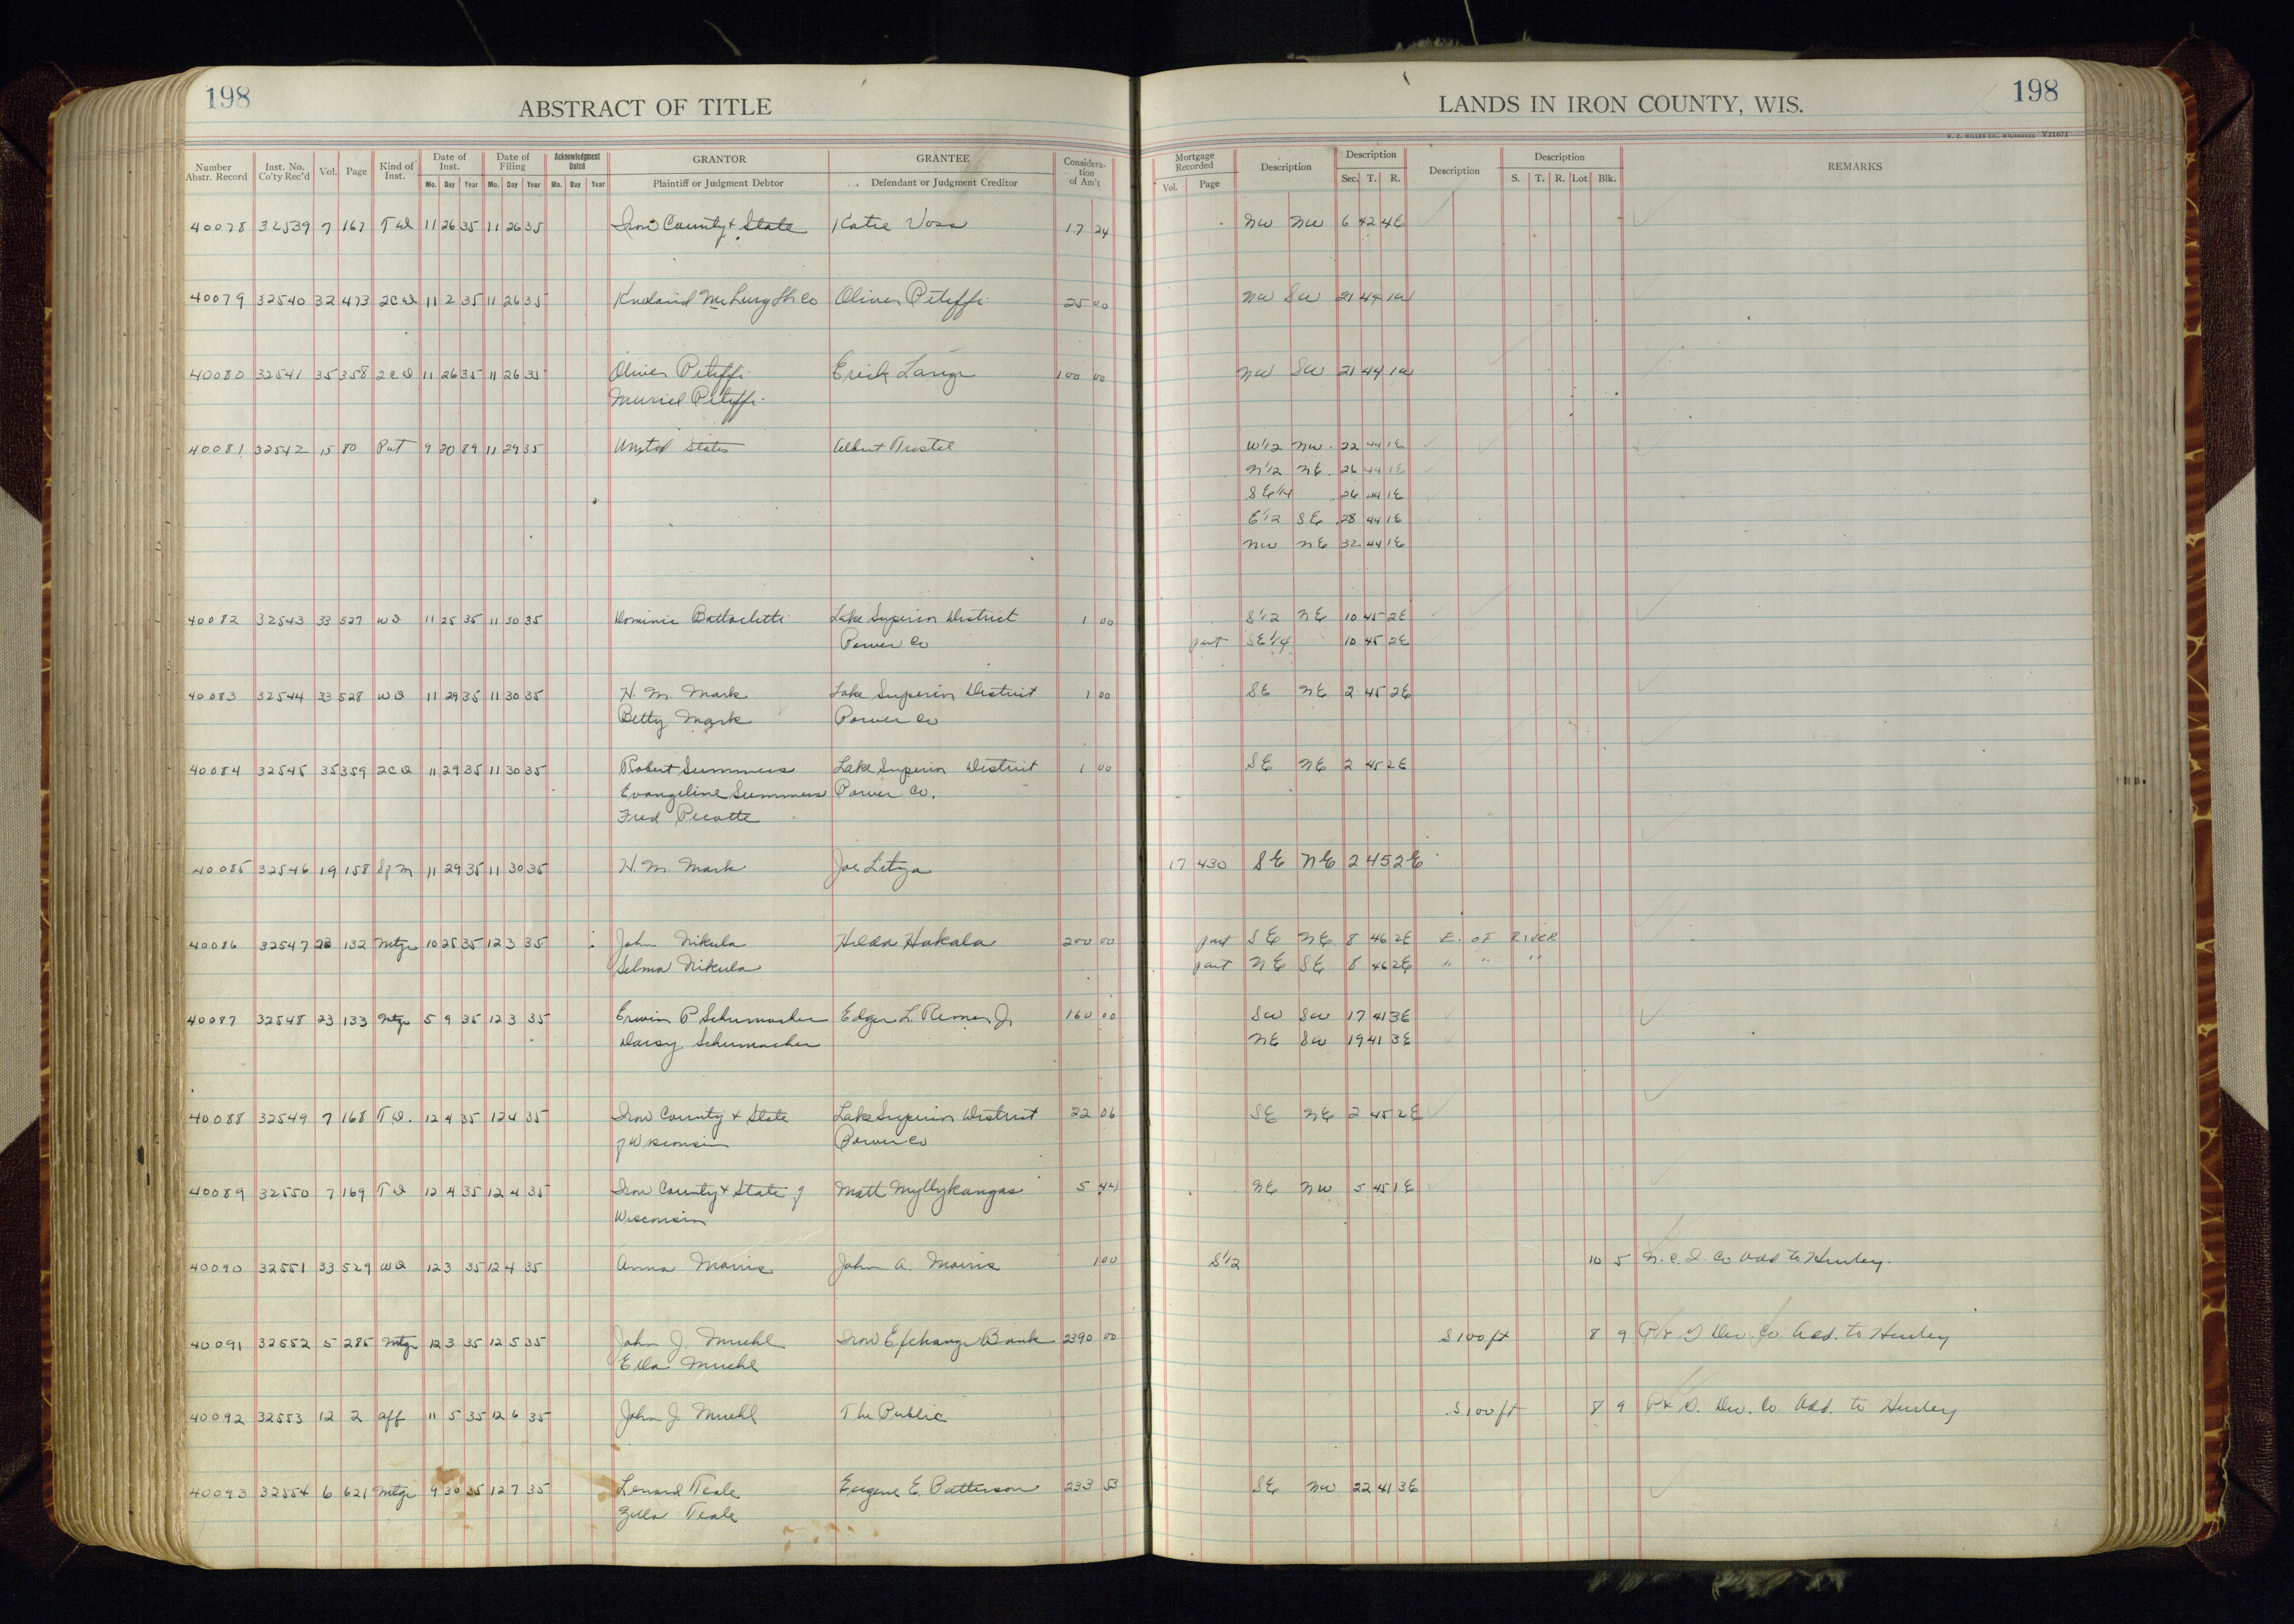 198
ABSTRACT OF TITLE
LANDS IN IRON COUNTY, WIS.
198
W. C. MILLER CO., MILWAUKEE Y21671
Number Abstr. Record Inst. No. Co'ty Rec'd Vol. Page Kind of Inst. Date of Inst. Date of Filing Acknowledgment Dated GRANTOR GRANTEE Consideration of Am't Mortgage Recorded Description Description Description Description REMARKS
Mo. Day Year Mo. Day Year Mo. Day Year Plaintiff or Judgment Debtor Defendant or Judgment Creditor Vol. Page Sec. T. R. S. T. R. Lot Blk.
40078 32539 7 167 T D 11 26 35 11 26 35 Iron County & State Katie Voss 17 24 NW NW 6 42 4E
40079 32540 32 473 2CD 11 2 35 11 26 35 Oliver 25 00 NW SW 21 44 1W
40080 32541 35 358 2CD 11 26 35 11 26 35 Oliver Erick Lange 100 00 NW SW 21 44 1W
Muriel
40081 32542 15 80 Pat 9 20 89 11 29 35 United States Albert Trostel W1/2 NW 22 44 1E
N1/2 NE 26 44 1E
SE1/4 26 44 1E
E1/2 SE 28 44 1E
NW NE 32 44 1E
40082 32543 33 527 WD 11 25 35 11 30 35 Dominic Lake Superior District 1 00 S1/2 NE 10 45 2E
Power Co part SE1/4 10 45 2E
40083 32544 33 528 WD 11 29 35 11 30 35 H. M. Mark Lake Superior District 1 00 SE NE 2 45 2E
Betty Mark Power Co
40084 32545 35 359 2CD 11 29 35 11 30 35 Robert Summers Lake Superior District 1 00 SE NE 2 45 2E
Evangeline Summers Power Co.
Fred Picotte
40085 32546 19 158 Sf M 11 29 35 11 30 35 H. M. Mark Joe 17 430 SE NE 2 45 2E
40086 32547 23 132 Mtge 10 25 35 12 3 35 John Nikula Hilda Hakala 200 00 part SE NE 8 46 2E E. OF RIVER
Selma Nikula part NE SE 8 46 2E " " "
40087 32548 23 133 Mtge 5 9 35 12 3 35 Erwin P Schumacher Edgar L. Remer Jr 160 00 SW SW 17 41 3E
Daisy Schumacher NE SW 19 41 3E
40088 32549 7 168 T D. 12 4 35 12 4 35 Iron County & State Lake Superior District 22 06 SE NE 2 45 2E
of Wisconsin Power Co
40089 32550 7 169 T D 12 4 35 12 4 35 Iron County & State of Matt Myllykangas 5 44 NE NW 5 45 1E
Wisconsin
40090 32551 33 529 WD 12 3 35 12 4 35 Anna Morris John A. Morris 1 00 S1/2 10 5 Co Add to Hurley.
40091 32552 5 285 Mtge 12 3 35 12 5 35 John J. Muehl Iron Exchange Bank 2390 00 S 100 ft 8 9 Dev. Co. Add. to Hurley
Ella Muehl
40092 32553 12 2 Aff 11 5 35 12 6 35 John J. Muehl The Public S 100 ft 8 9 Dev. Co. Add. to Hurley
40093 32554 6 621 Mtge 9 30 35 12 7 35 Lenard Teale Eugene E. Patterson 233 53 SE NW 22 41 3E
Zella Teale